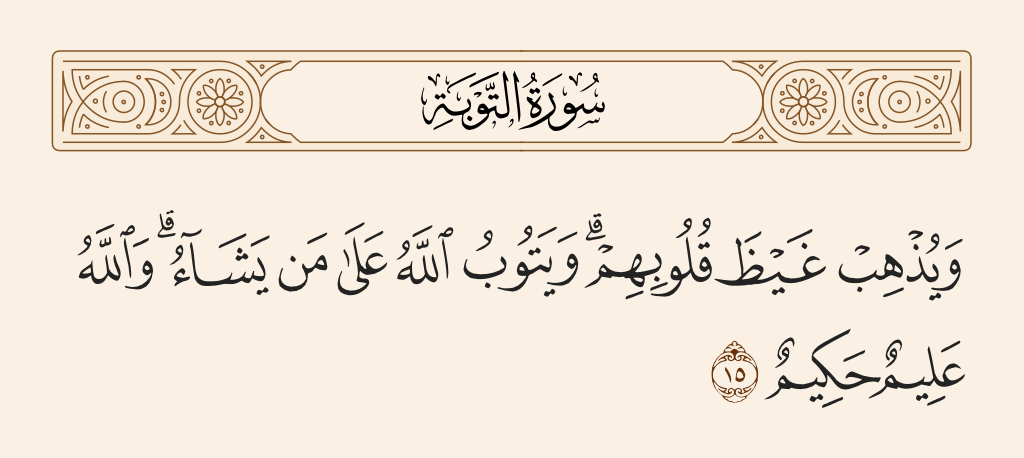 سُورَةُ التَّوْبَةِ
وَيُذْهِبْ غَيْظَ قُلُوبِهِمْ ۗ وَيَتُوبُ ٱللَّهُ عَلَىٰ مَن يَشَآءُ ۗ وَٱللَّهُ
عَلِيمٌ حَكِيمٌ ١٥